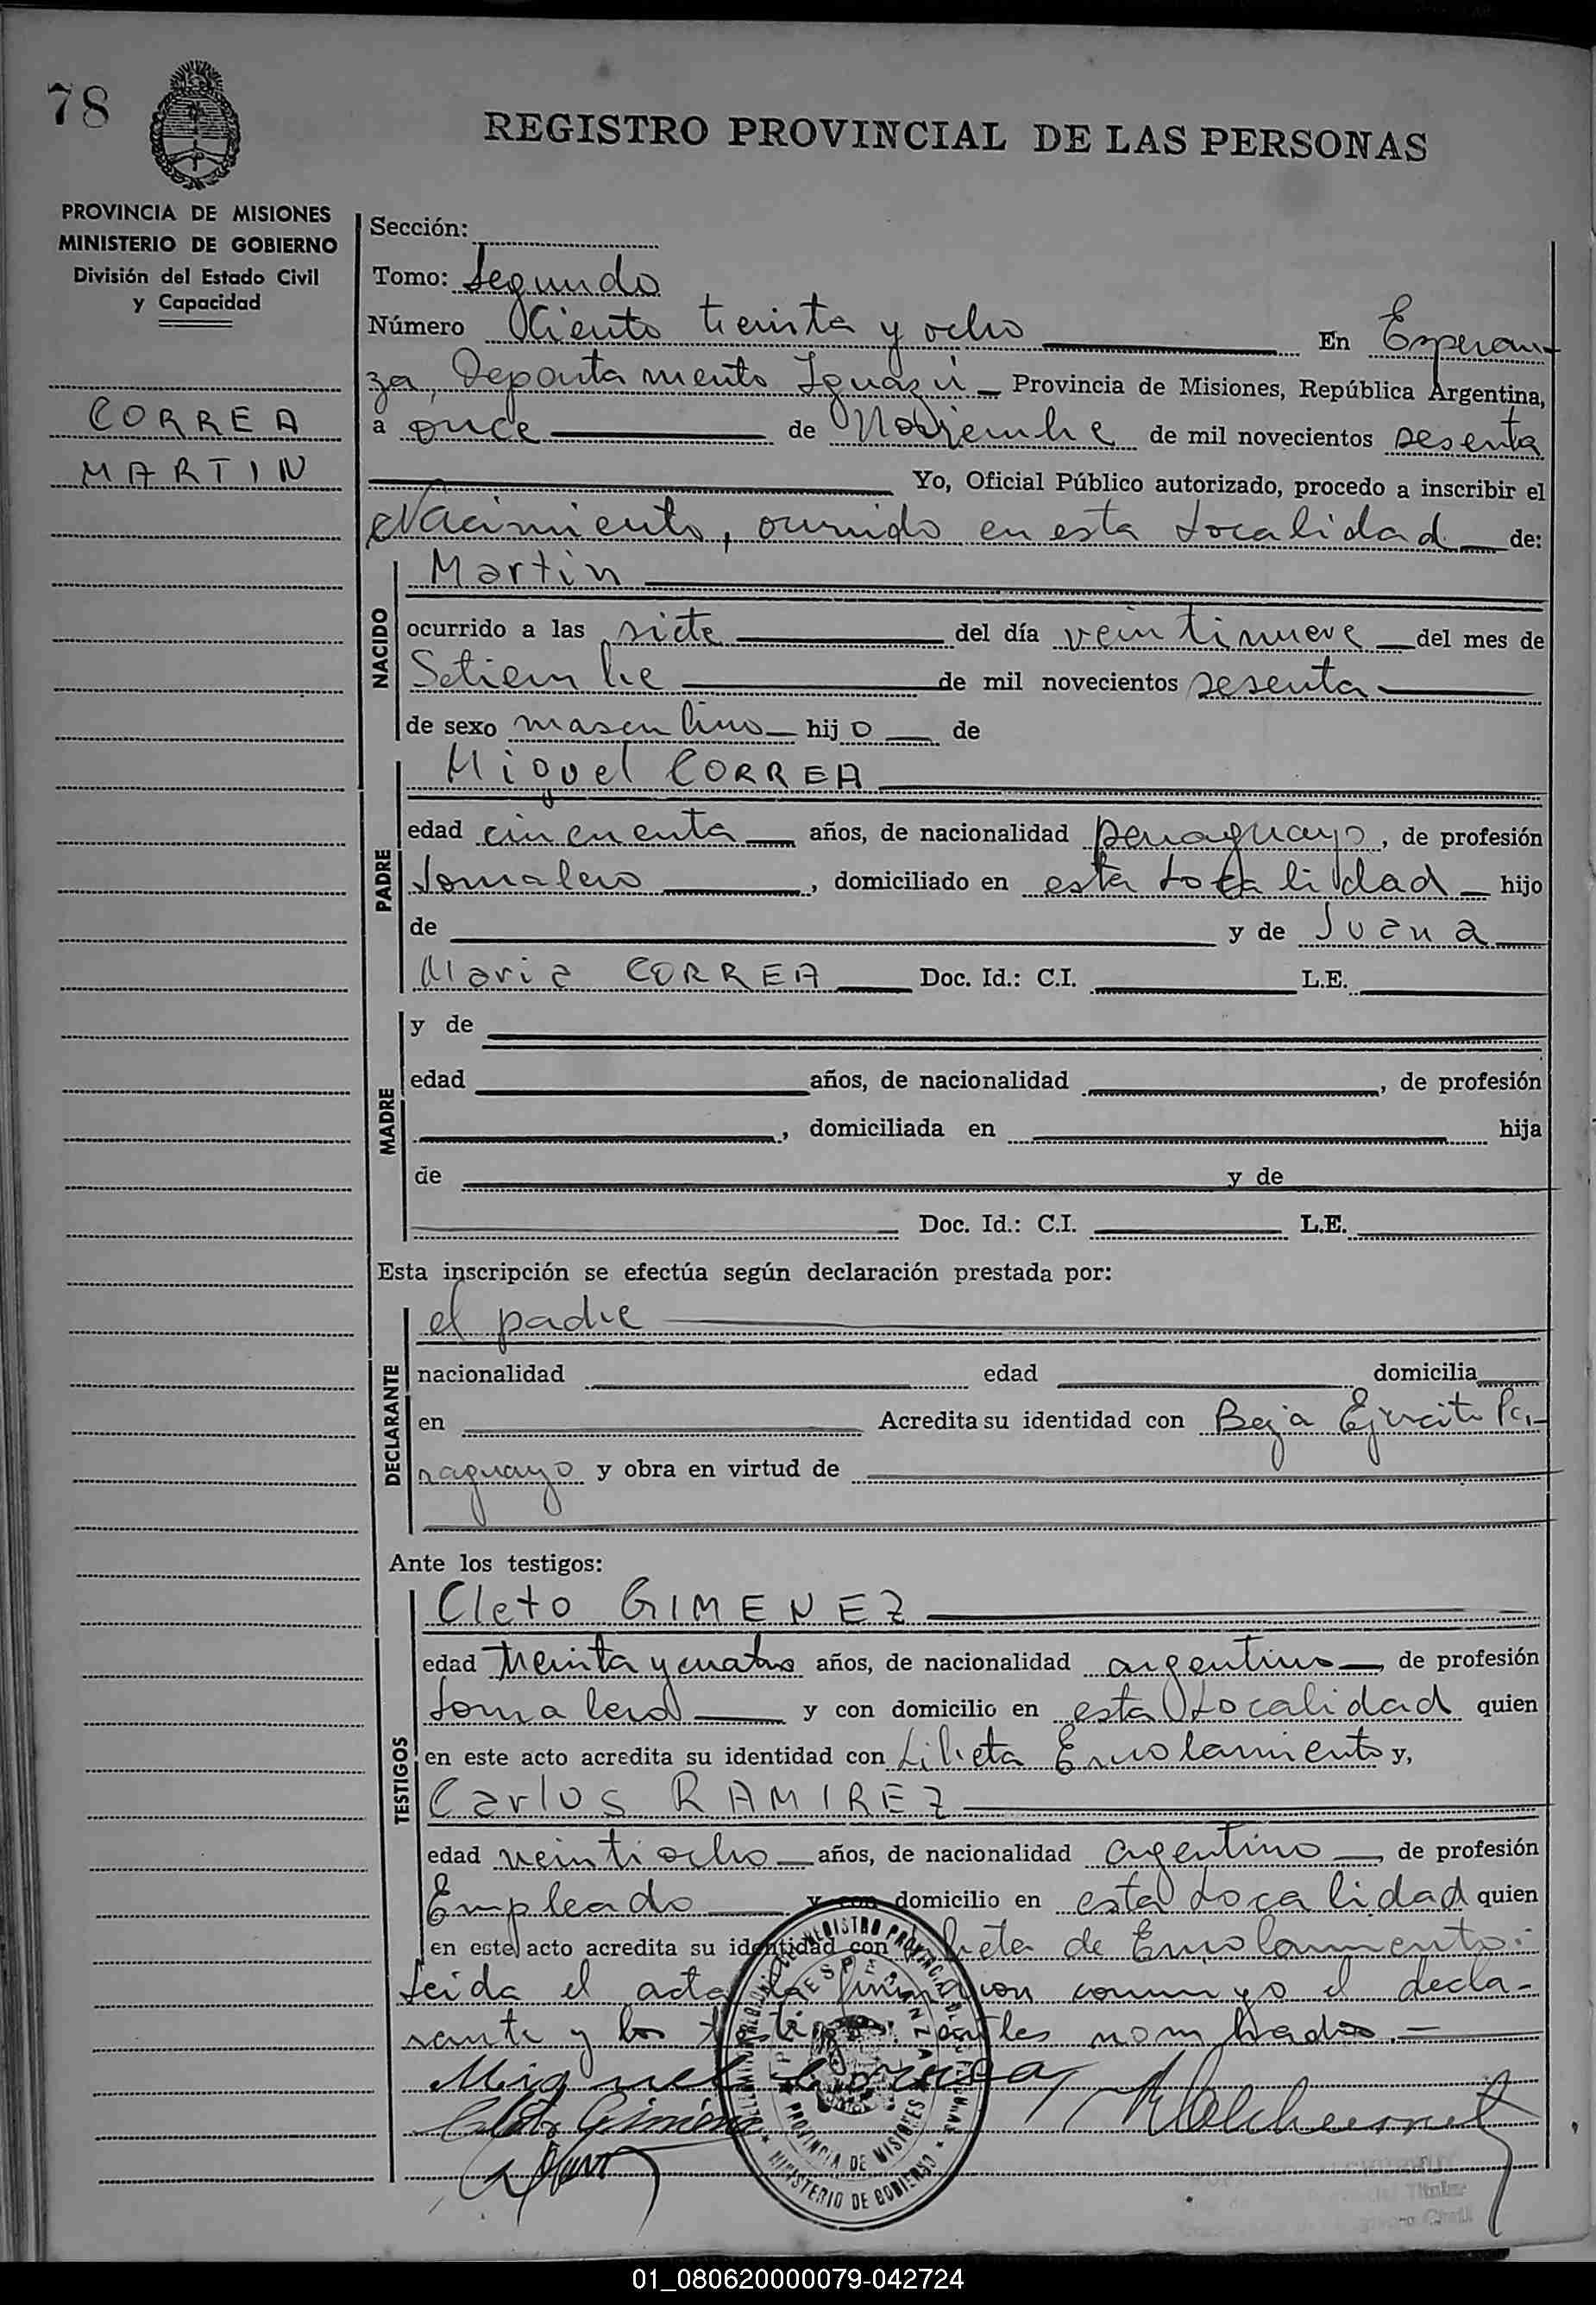 78
REGISTRO PROVINCIAL DE LAS PERSONAS
PROVINCIA DE MISIONES
MINISTERIO DE GOBIERNO
División del Estado Civil
y Capacidad
CORREA
MARTIN
Sección:
Tomo: Segundo
Número Ciento treinta y ocho En Esperan-
za, Departamento Iguazú Provincia de Misiones, República Argentina,
a once de Noviembre de mil novecientos sesenta
Yo, Oficial Público autorizado, procedo a inscribir el
Nacimiento, ocurrido en esta Localidad de:
NACIDO
Martin
ocurrido a las siete del día veintinueve del mes de
Setiembre de mil novecientos sesenta
de sexo masculino hijo de
PADRE
Miguel CORREA
edad cincuenta años, de nacionalidad paraguayo, de profesión
Jornalero, domiciliado en esta Localidad hijo
de y de Juana
Maria CORREA Doc. Id.: C.I. L.E.
MADRE
y de
edad años, de nacionalidad , de profesión
, domiciliada en hija
de y de
Doc. Id.: C.I. L.E.
Esta inscripción se efectúa según declaración prestada por:
DECLARANTE
el padre
nacionalidad edad domicilia
en Acredita su identidad con Baja Ejercito Pa-
raguayo y obra en virtud de
Ante los testigos:
TESTIGOS
Cleto GIMENEZ
edad treinta y cuatro años, de nacionalidad argentino, de profesión
Jornalero y con domicilio en esta Localidad quien
en este acto acredita su identidad con Libreta Enrolamiento y,
Carlos RAMIREZ
edad veintiocho años, de nacionalidad argentino, de profesión
Empleado y con domicilio en esta Localidad quien
en este acto acredita su identidad con Libreta de Enrolamiento.
Leida el acta la firmaron conmigo el decla-
rante y los testigos antes nombrados.-
Miguel Correa
Cleto Gimenez
REGISTRO PROVINCIAL DE LAS PERSONAS
ESPERANZA
PROVINCIA DE MISIONES
MINISTERIO DE GOBIERNO
Titular
Civil
01_080620000079-042724